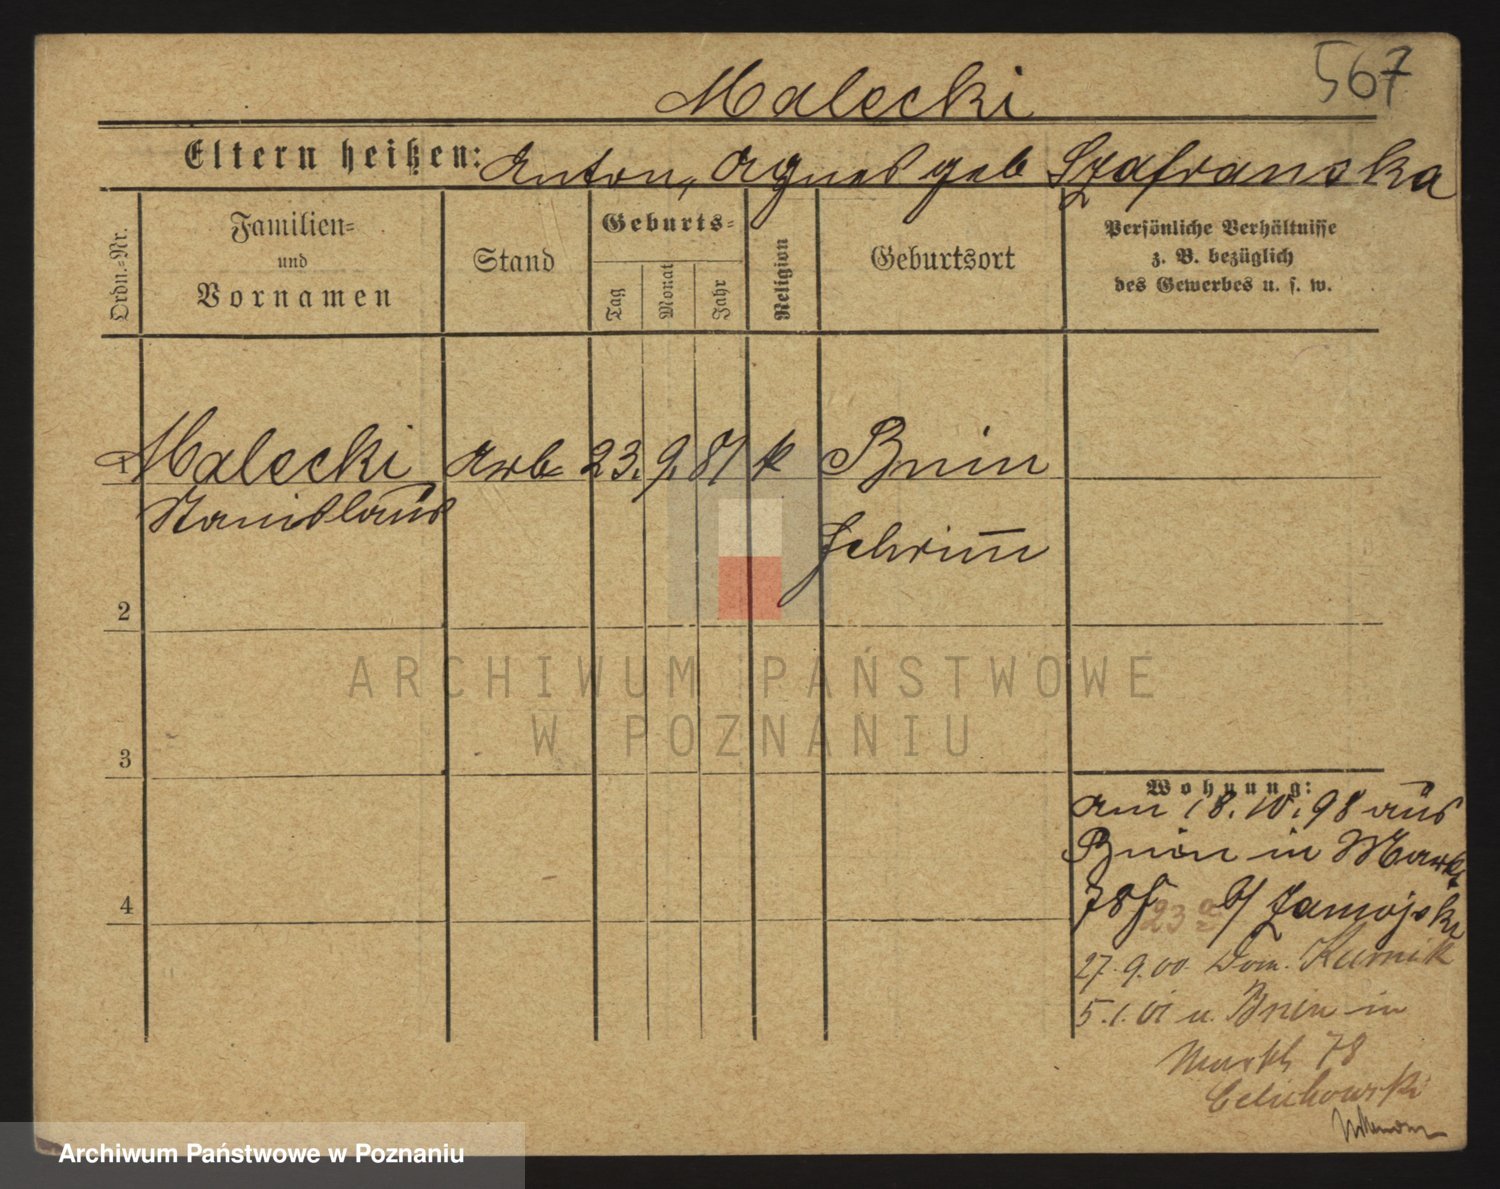 567
Malecki
Eltern heißen: Anton, Agnes geb Szafranska
Ordn.-Nr.
Familien-
und
Vornamen
Stand
Geburts-
Tag
Monat
Jahr
Religion
Geburtsort
Persönliche Verhältnisse
z. B. bezüglich
des Gewerbes u. s. w.
1 Malecki Arb 23. 9. 81 k Bnin
Stanislaus
Schrimm
2
3
4
Wohnung:
am 18.10.98 aus
Bnin in Markt
78 23 b/ Zamojski
27.9.00 Dom. Kurnik
5.1.01 u. Bnin in
Markt 78
Celichowski
ARCHIWUM PAŃSTWOWE
W POZNANIU
Archiwum Państwowe w Poznaniu